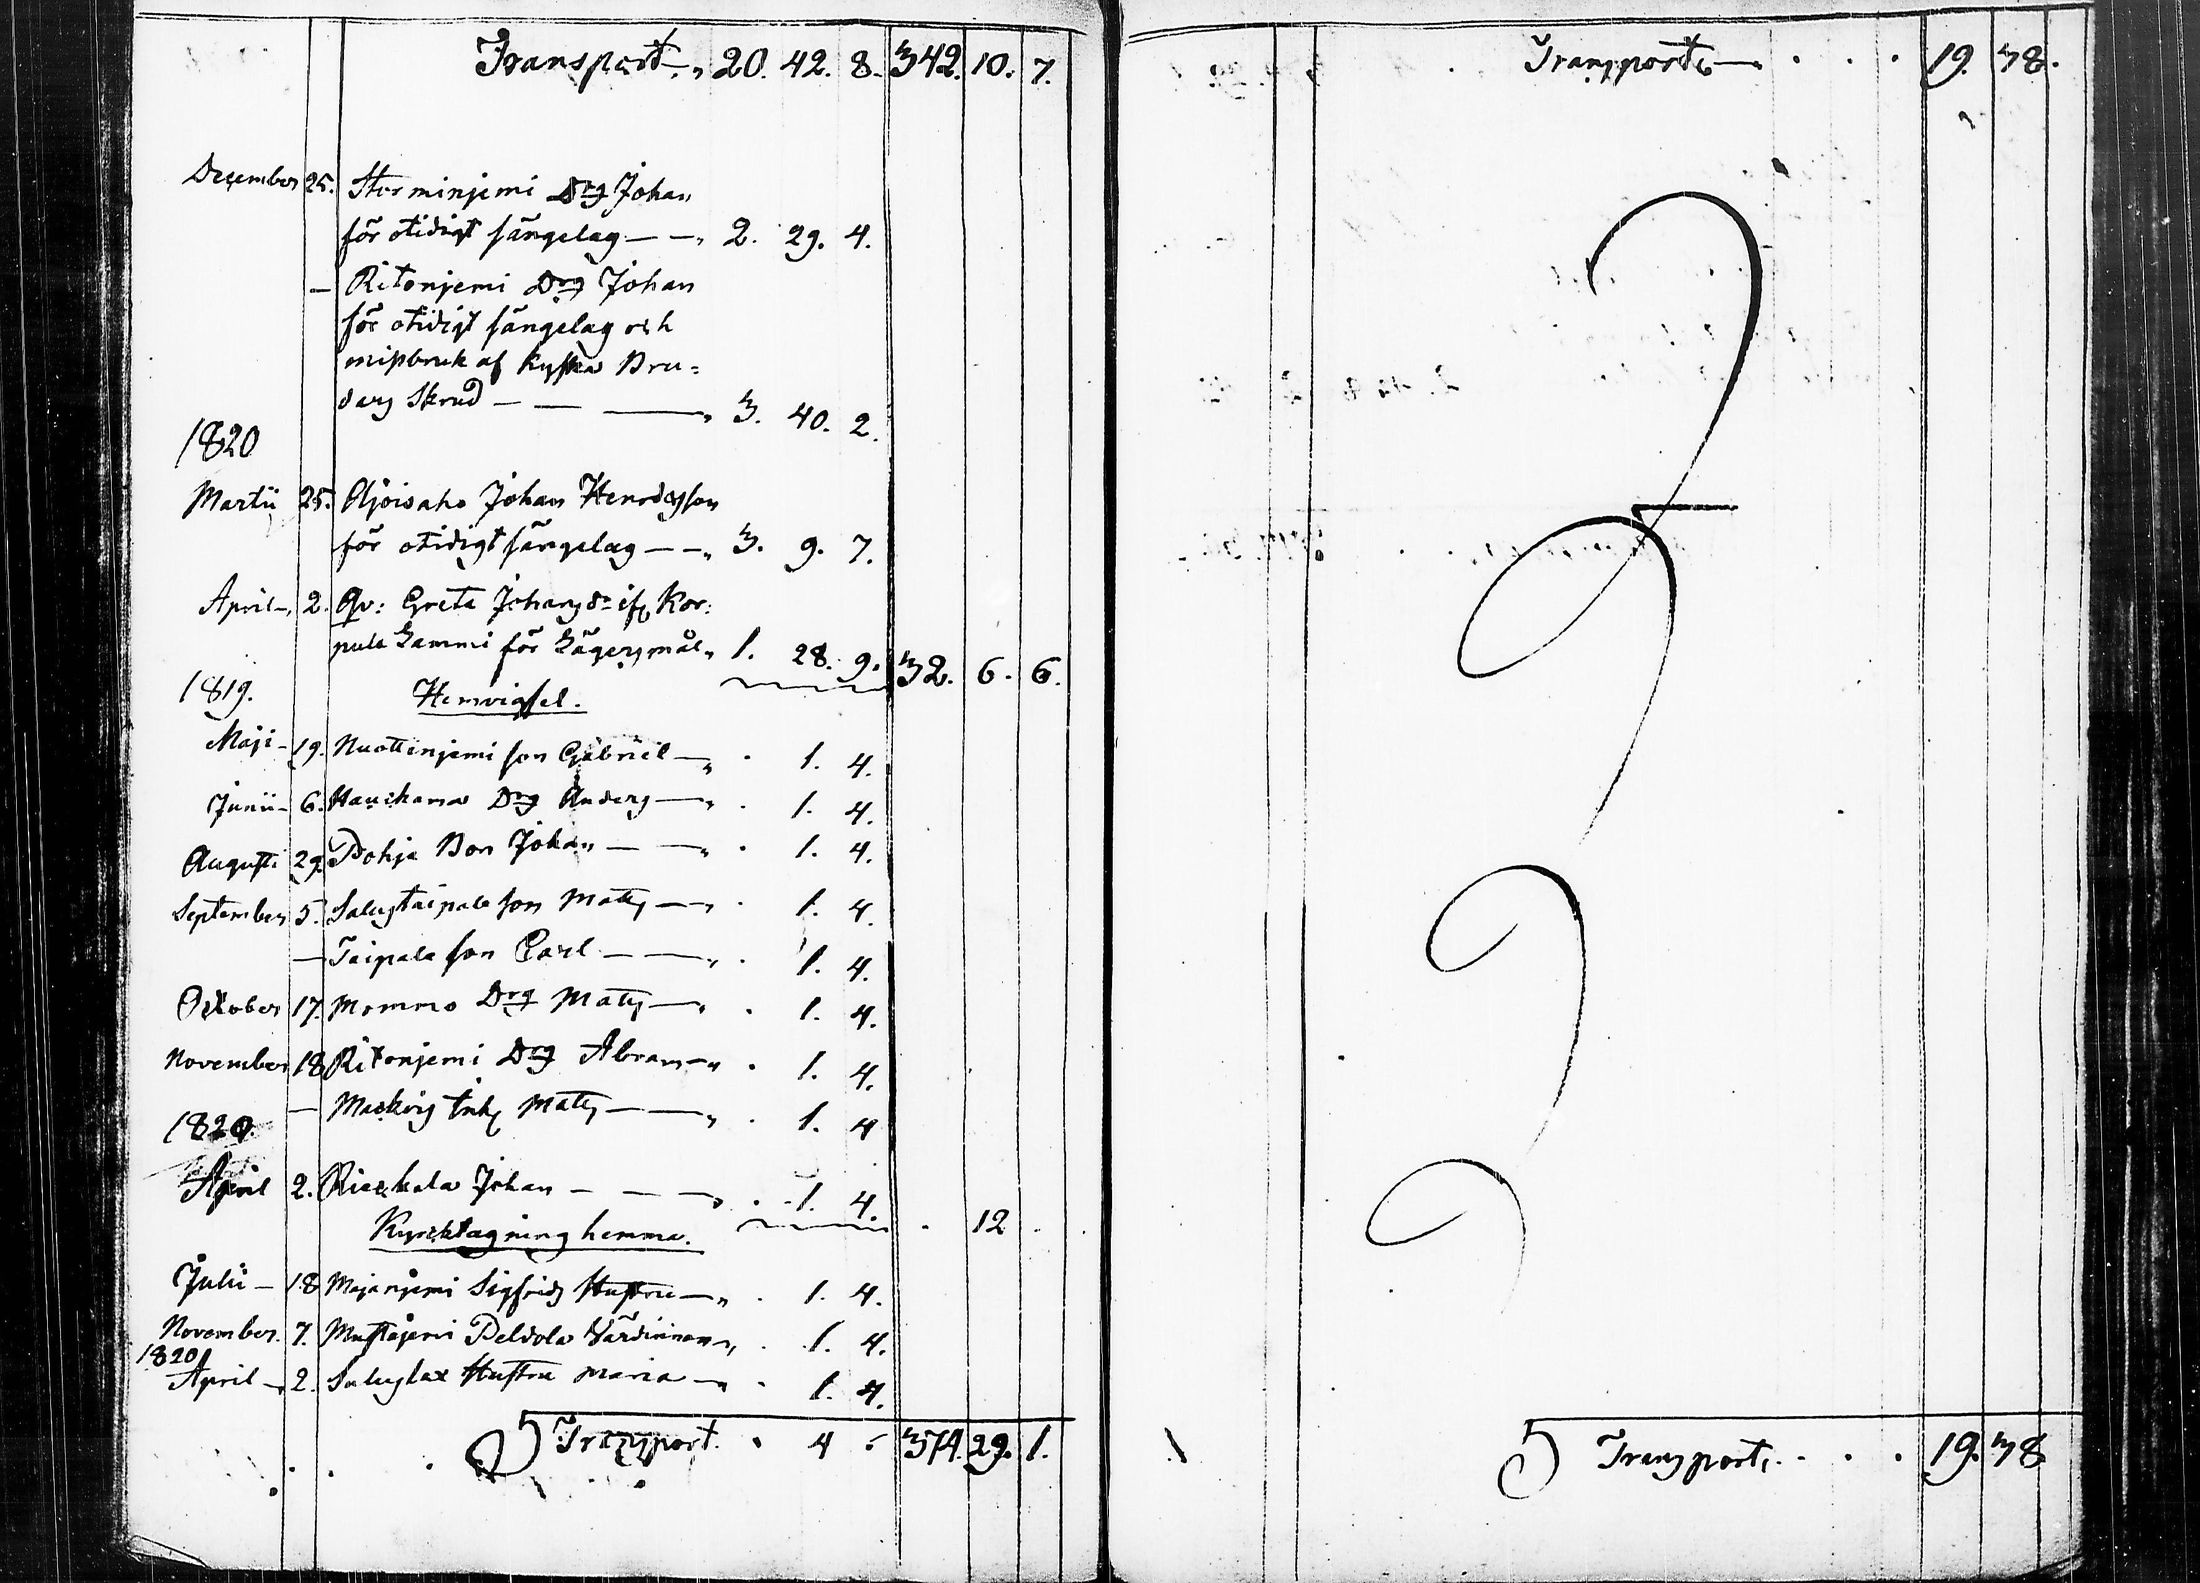 Transport 20. 42. 8. 342. 10. 7.
December 25. Storminjemi Drg Johan
för otidigt sängelag — — 2. 29. 4.
— Ritonjemi Drg Johan
för otidigt sängelag och
missbruk af Kyska Bru=
dars Skrud — — — 3. 40. 2.
1820
Martii 25. Johan Henricsson
för otidigt sängelag — — 3. 9. 7.
April 2. Qv: Greta Johansdr ifr Kor:
pula Lammi för Lägersmål 1. 28. 9. 32. 6. 6.
1819.
Hemvigsel.
Maji 19. Nuottinjemi son Gabriel — . 1. 4.
Junii 6. Haukana Drg Anders — . 1. 4.
Augusti 29. Pohja Bon Johan — — . 1. 4.
September 5. Salustaipale son Mats — . 1. 4.
— Taipale son Carl — — . 1. 4.
October 17. Mommo Drg Mats — . 1. 4.
November 18 Ritonjemi Drg Abram — . 1. 4.
— Mats — — . 1. 4
1820.
April 2. Rieckola Johan — — — . 1. 4.
Kyrcktagning hemma. . 12 .
Julii — 18 Majanjemi Sigfrids Hustru — . 1. 4.
November. 7. Mustajemi Peldola Värdinnan . 1. 4.
1820
April — 2. Saluslax Hustru Maria — . 1. 4.
Transport . 4 374. 29. 1.
Transport — . . . 19. 38.
Transport . . . 19. 38